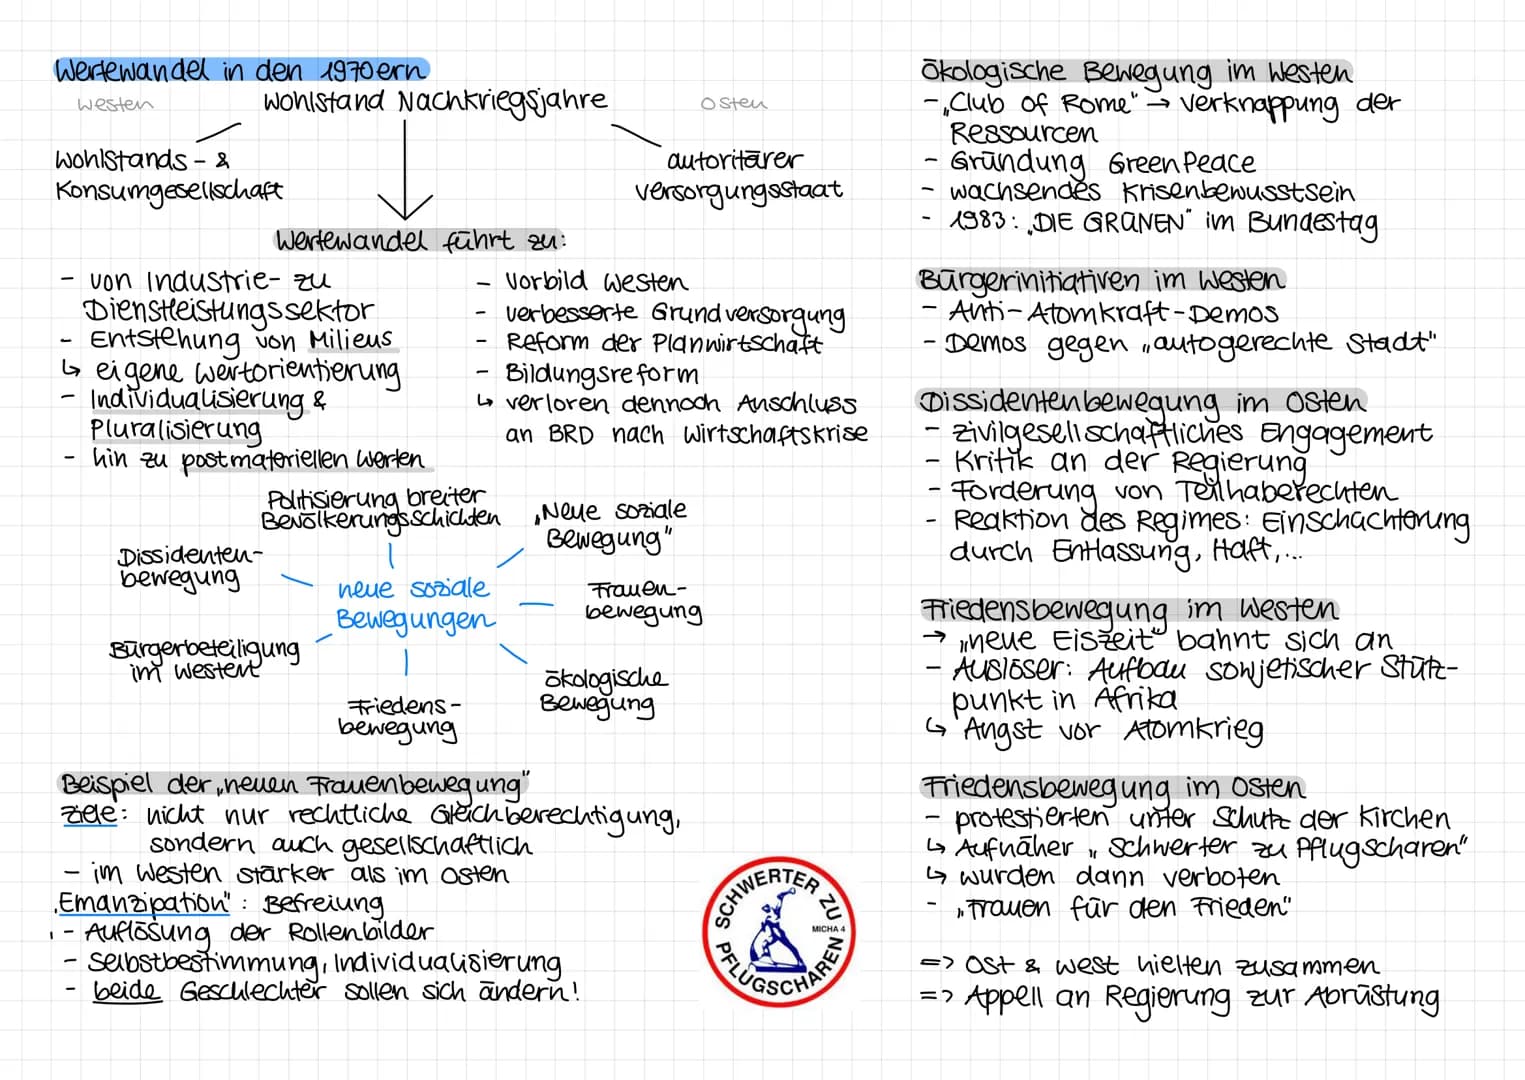 Wertewandel in den 1970ern
Westen
Wohlstand Nachkriegsjahre
Osten
Wohlstands- &
Konsumgesellschaft
autoritärer
Versorgungsstaat
Wertewandel führt zu:
- von Industrie- zu
Dienstleistungssektor
- Entstehung von Milieus
↳ eigene Wertorientierung
- Individualisierung &
Pluralisierung
- hin zu postmateriellen Werten
- Vorbild Westen
- verbesserte Grundversorgung
- Reform der Planwirtschaft
- Bildungsreform
↳ verloren dennoch Anschluss
an BRD nach Wirtschaftskrise
Politisierung breiter
Bevölkerungsschichten
„Neue soziale
Bewegung"
Dissidenten-
bewegung
neue soziale
Bewegungen
Frauen-
bewegung
Bürgerbeteiligung
im Westen
ökologische
Bewegung
Friedens-
bewegung
Beispiel der „neuen Frauenbewegung"
Ziele: nicht nur rechtliche Gleichberechtigung,
sondern auch gesellschaftlich
- im Westen stärker als im Osten
„Emanzipation": Befreiung
- Auflösung der Rollenbilder
- Selbstbestimmung, Individualisierung
- beide Geschlechter sollen sich ändern!
SCHWERTER ZU
PFLUGSCHAREN
MICHA 4
Ökologische Bewegung im Westen
- „Club of Rome" → Verknappung der
Ressourcen
- Gründung GreenPeace
- wachsendes Krisenbewusstsein
- 1983: „DIE GRÜNEN" im Bundestag
Bürgerinitiativen im Westen
- Anti-Atomkraft-Demos
- Demos gegen „autogerechte Stadt"
Dissidentenbewegung im Osten
- zivilgesellschaftliches Engagement
- Kritik an der Regierung
- Forderung von Teilhaberechten
- Reaktion des Regimes: Einschüchterung
durch Entlassung, Haft,...
Friedensbewegung im Westen
→ „neue Eiszeit" bahnt sich an
- Auslöser: Aufbau sowjetischer Stütz-
punkt in Afrika
↳ Angst vor Atomkrieg
Friedensbewegung im Osten
- protestierten unter Schutz der Kirchen
↳ Aufnäher „Schwerter zu Pflugscharen"
↳ wurden dann verboten
- „Frauen für den Frieden"
=> Ost & West hielten zusammen
=> Appell an Regierung zur Abrüstung